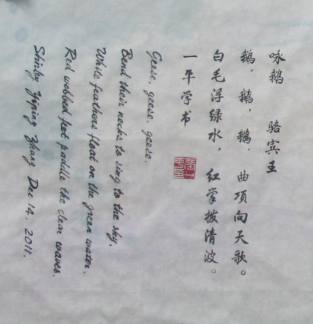 咏鹅 骆宾王
鹅，鹅，鹅，曲项向天歌。
白毛浮绿水，红掌拨清波。
一平学书
Geese, geese, geese.
Bend their necks to sing to the sky.
White feathers float on the green water.
Red webbed feet paddle the clear waves.
Shirley Yiping Zhang Dec 14, 2011.